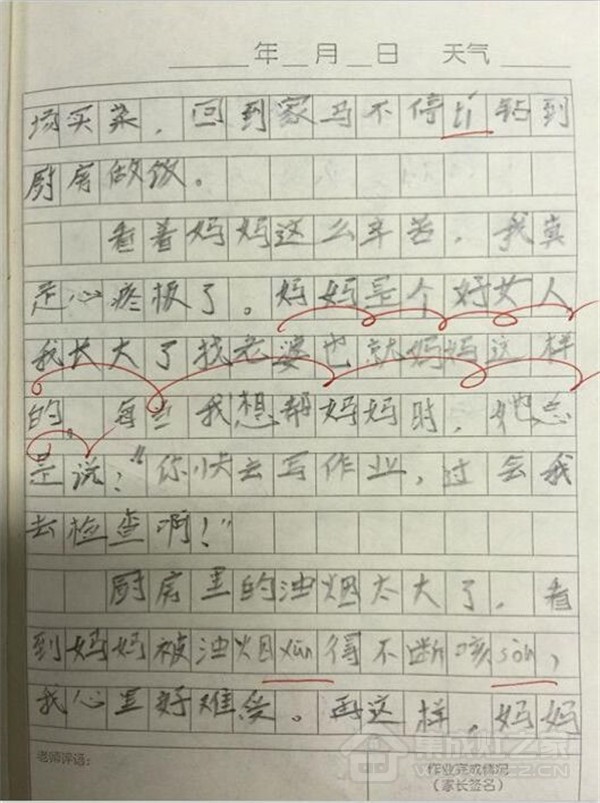 年 月 日 天气
场买菜，回到家马不停tí钻到
厨房做饭。
看着妈妈这么辛苦，我真
是心疼极了。妈妈是个好女人
我长大了找老婆也就妈妈这样
的。每当我想帮妈妈时，她总
是说："你快去写作业，过会我
去检查啊！"
厨房里的油烟太大了，看
到妈妈被油烟xūn得不断咳sòu，
我心里好难受。再这样，妈妈
老师评语：
作业完成情况
（家长签名）
集成灶之家